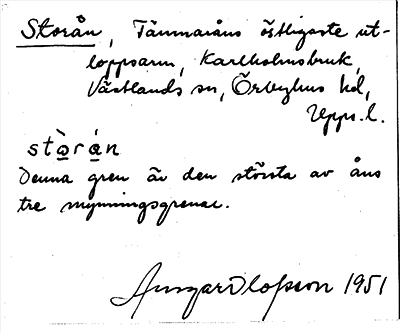 Storån, Tämnaråns östligaste ut-
loppsarm, Karlholmsbruk,
Västlands sn, Örbyhus hd,
Upps. l.
stò̱rá̱n
Denna gren är den största av åns
tre mynningsgrenar.
Ansgar Olofsson 1951